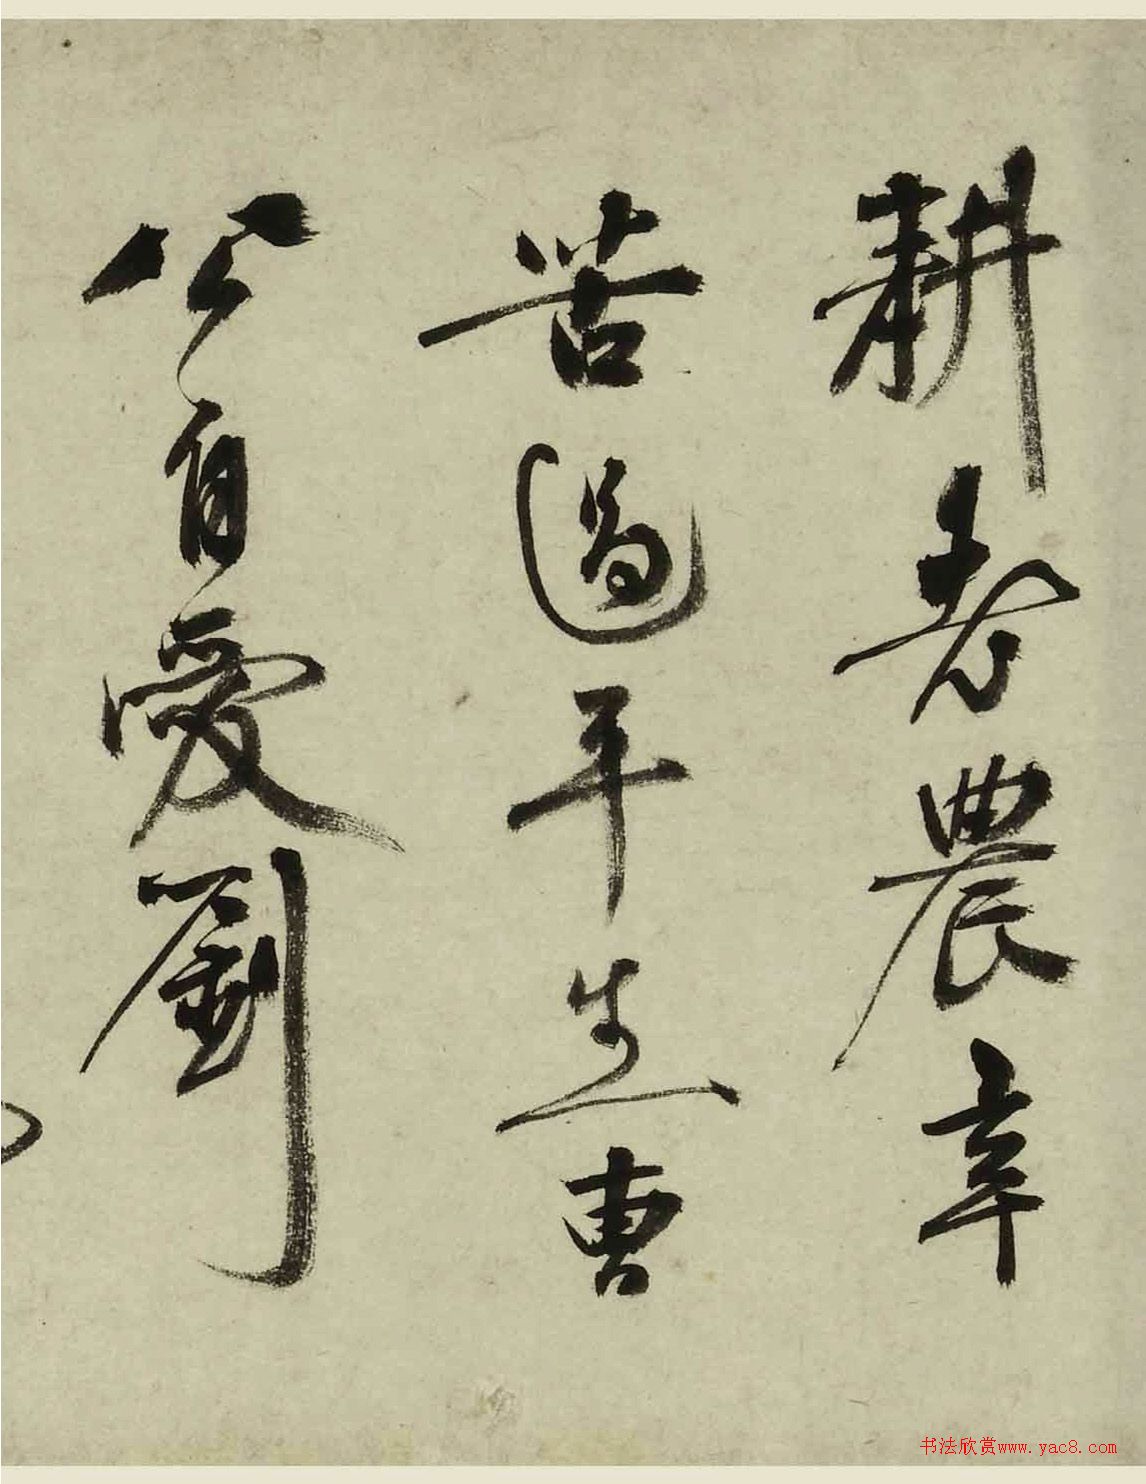 耕老農辛
苦過平生曹
公自愛劉
书法欣赏www.yac8.com